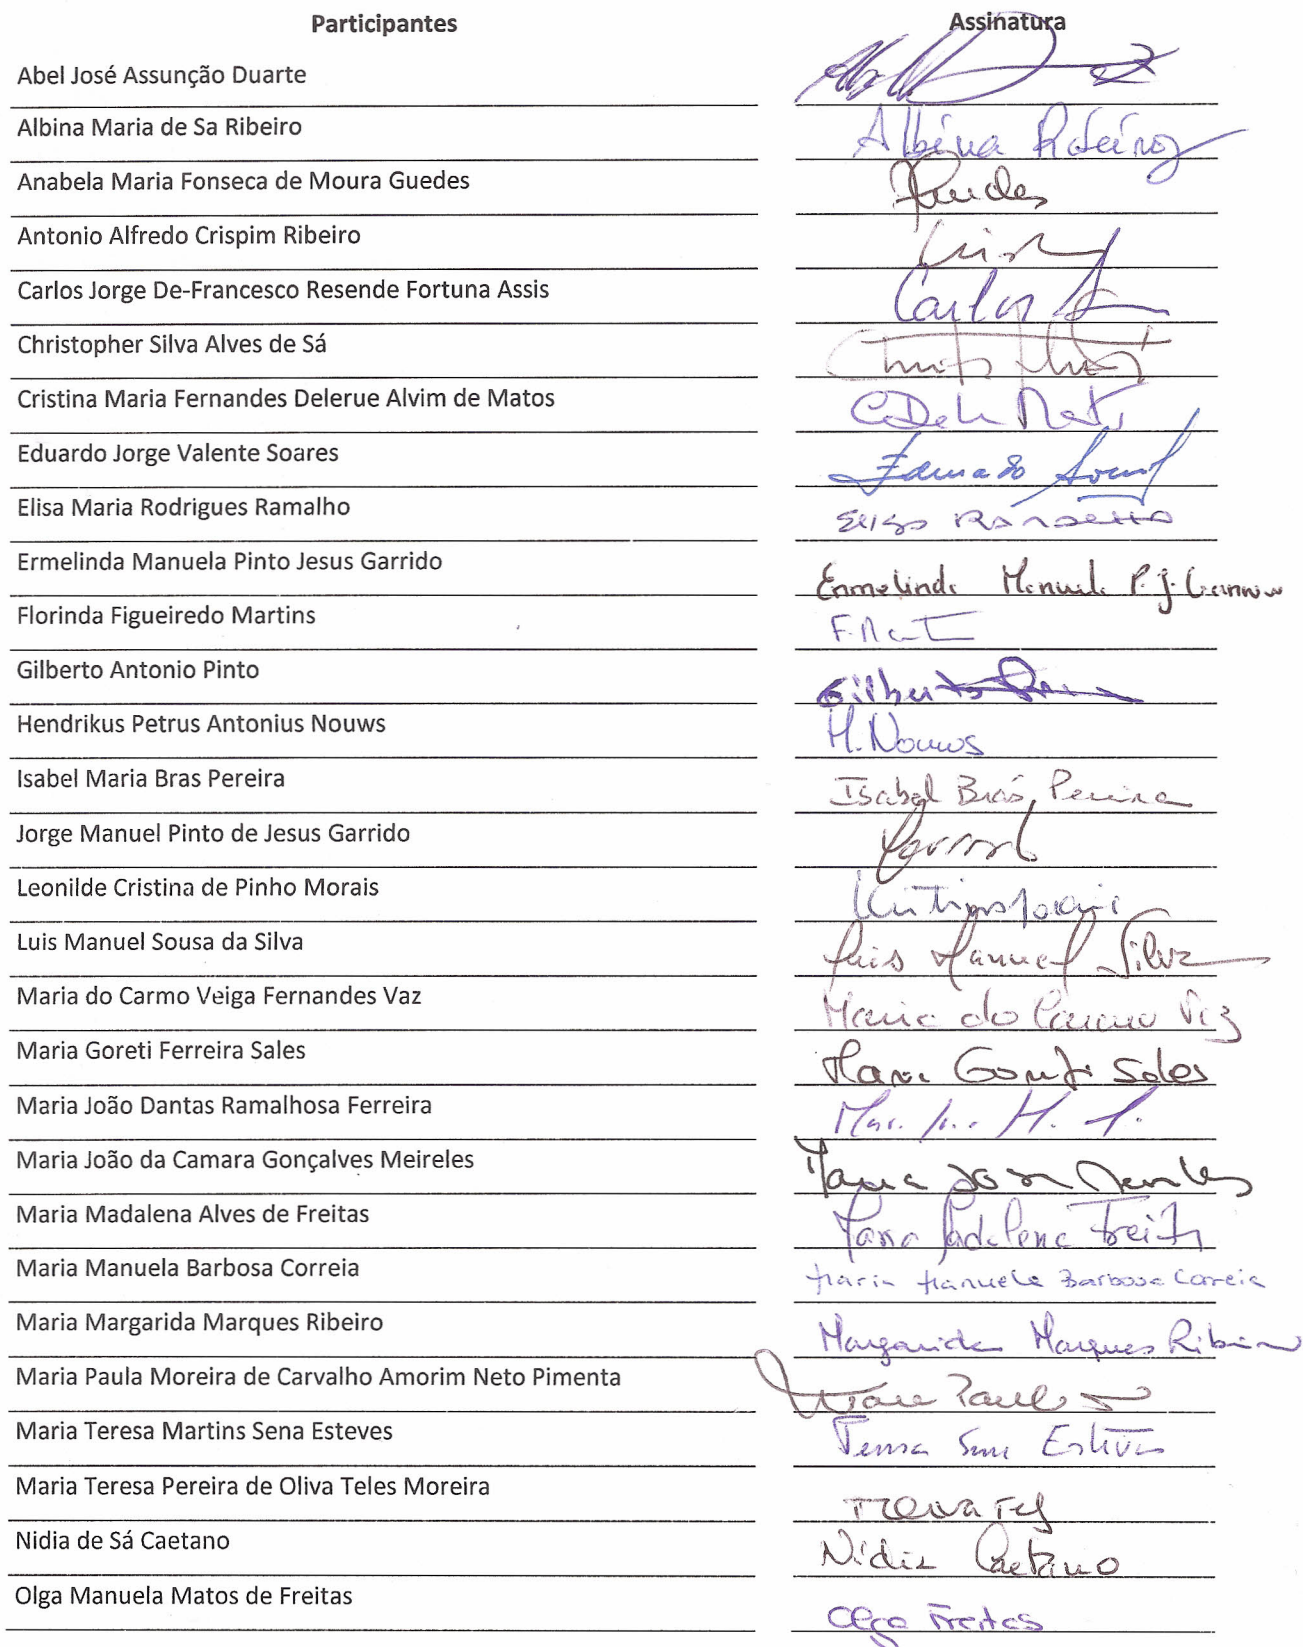 Participantes Assinatura
Abel José Assunção Duarte
Albina Maria de Sa Ribeiro Albina Ribeiro
Anabela Maria Fonseca de Moura Guedes Guedes
Antonio Alfredo Crispim Ribeiro
Carlos Jorge De-Francesco Resende Fortuna Assis Carlos
Christopher Silva Alves de Sá
Cristina Maria Fernandes Delerue Alvim de Matos
Eduardo Jorge Valente Soares Eduardo Soares
Elisa Maria Rodrigues Ramalho Elisa Ramalho
Ermelinda Manuela Pinto Jesus Garrido Ermelinda Manuela P. J. Garrido
Florinda Figueiredo Martins
Gilberto Antonio Pinto Gilberto
Hendrikus Petrus Antonius Nouws H. Nouws
Isabel Maria Bras Pereira Isabel Brás Pereira
Jorge Manuel Pinto de Jesus Garrido Garrido
Leonilde Cristina de Pinho Morais
Luis Manuel Sousa da Silva Luis Manuel Silva
Maria do Carmo Veiga Fernandes Vaz Maria do Carmo Vaz
Maria Goreti Ferreira Sales Maria Goreti Sales
Maria João Dantas Ramalhosa Ferreira
Maria João da Camara Gonçalves Meireles Maria João Meireles
Maria Madalena Alves de Freitas Maria Madalena Freitas
Maria Manuela Barbosa Correia Maria Manuela Barbosa Correia
Maria Margarida Marques Ribeiro Margarida Marques Ribeiro
Maria Paula Moreira de Carvalho Amorim Neto Pimenta Maria Paula
Maria Teresa Martins Sena Esteves Teresa Sena Esteves
Maria Teresa Pereira de Oliva Teles Moreira
Nidia de Sá Caetano Nídia Caetano
Olga Manuela Matos de Freitas Olga Freitas